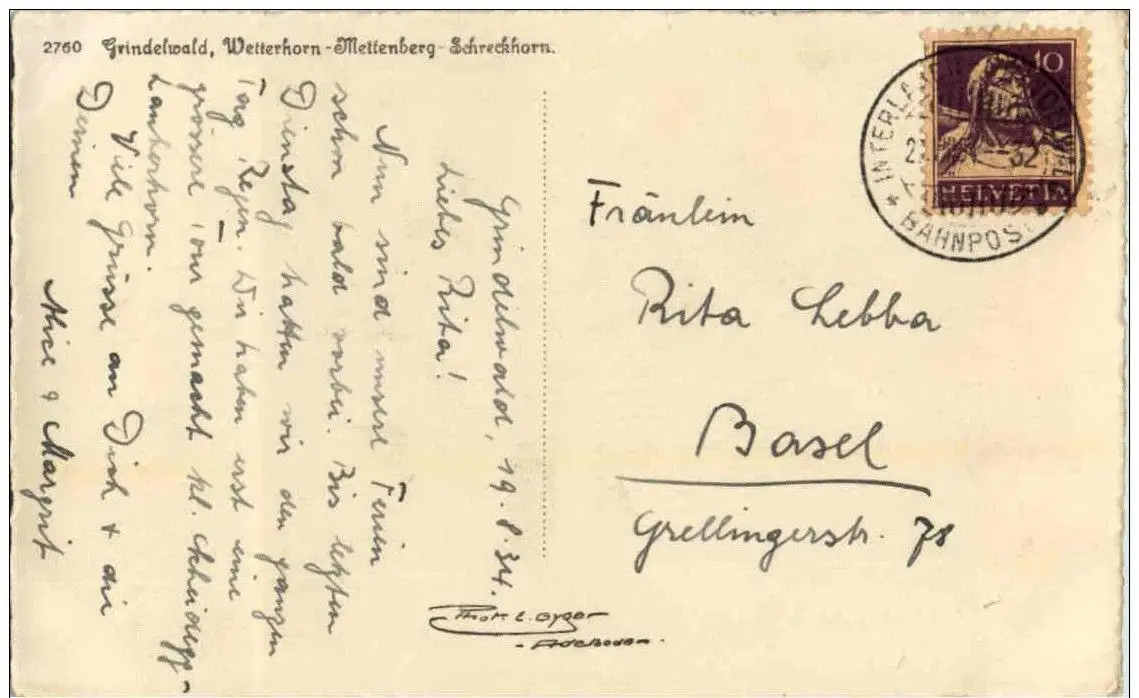 2760 Grindelwald, Wetterhorn-Mettenberg-Schreckhorn.
Grindelwald, 19.8.34.
Liebes Rita!
Nun sind unsere Ferien
schon bald vorbei. Bis letzten
Dienstag hatten wir den ganzen
Tag Regen. Wir haben erst eine
grössere Tour gemacht kl. Scheidegg-
Lauberhorn.
Viele Grüsse an Dich & die
Deinen
Alice & Margrit
Phot. E. Gyger
- Adelboden -
10
HELVETIA
INTERLAKEN
BAHNPOST
Fräulein
Rita Lebba
Basel
Grellingerstr. 78